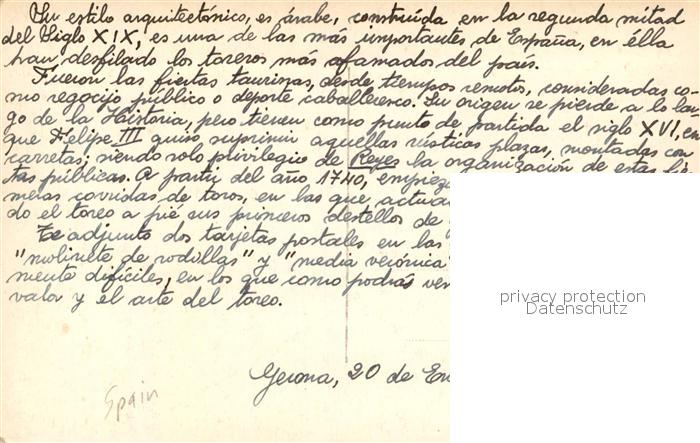 Su estilo arquitectónico, es árabe, construída en la segunda mitad
del Siglo XIX, es una de las más importantes de España, en élla
han, desfilado los toreros más afamados del país.
Fueron las fiestas taurinas, desde tiempos remotos, consideradas co-
mo regocijo público o deporte caballeresco. Su origen se pierde a lo lar-
go de la Historia, pero tienen como punto de partida el siglo XVI, en
que Felipe III quiso suprimir aquellas rústicas plazas, montadas con
carretas; siendo solo privilegio de Reyes la organización de estas fies-
tas públicas. A partir del año 1740, empiez
meras corridas de toros, en las que actua
do el toreo a pié sus primeros destellos de
Te adjunto dos tarjetas postales en las
"molinete de rodillas" y "media verónica
mente difíciles, en los que como podrás ver
valor y el arte del toreo.
privacy protection
Datenschutz
Gerona, 20 de En
Spain